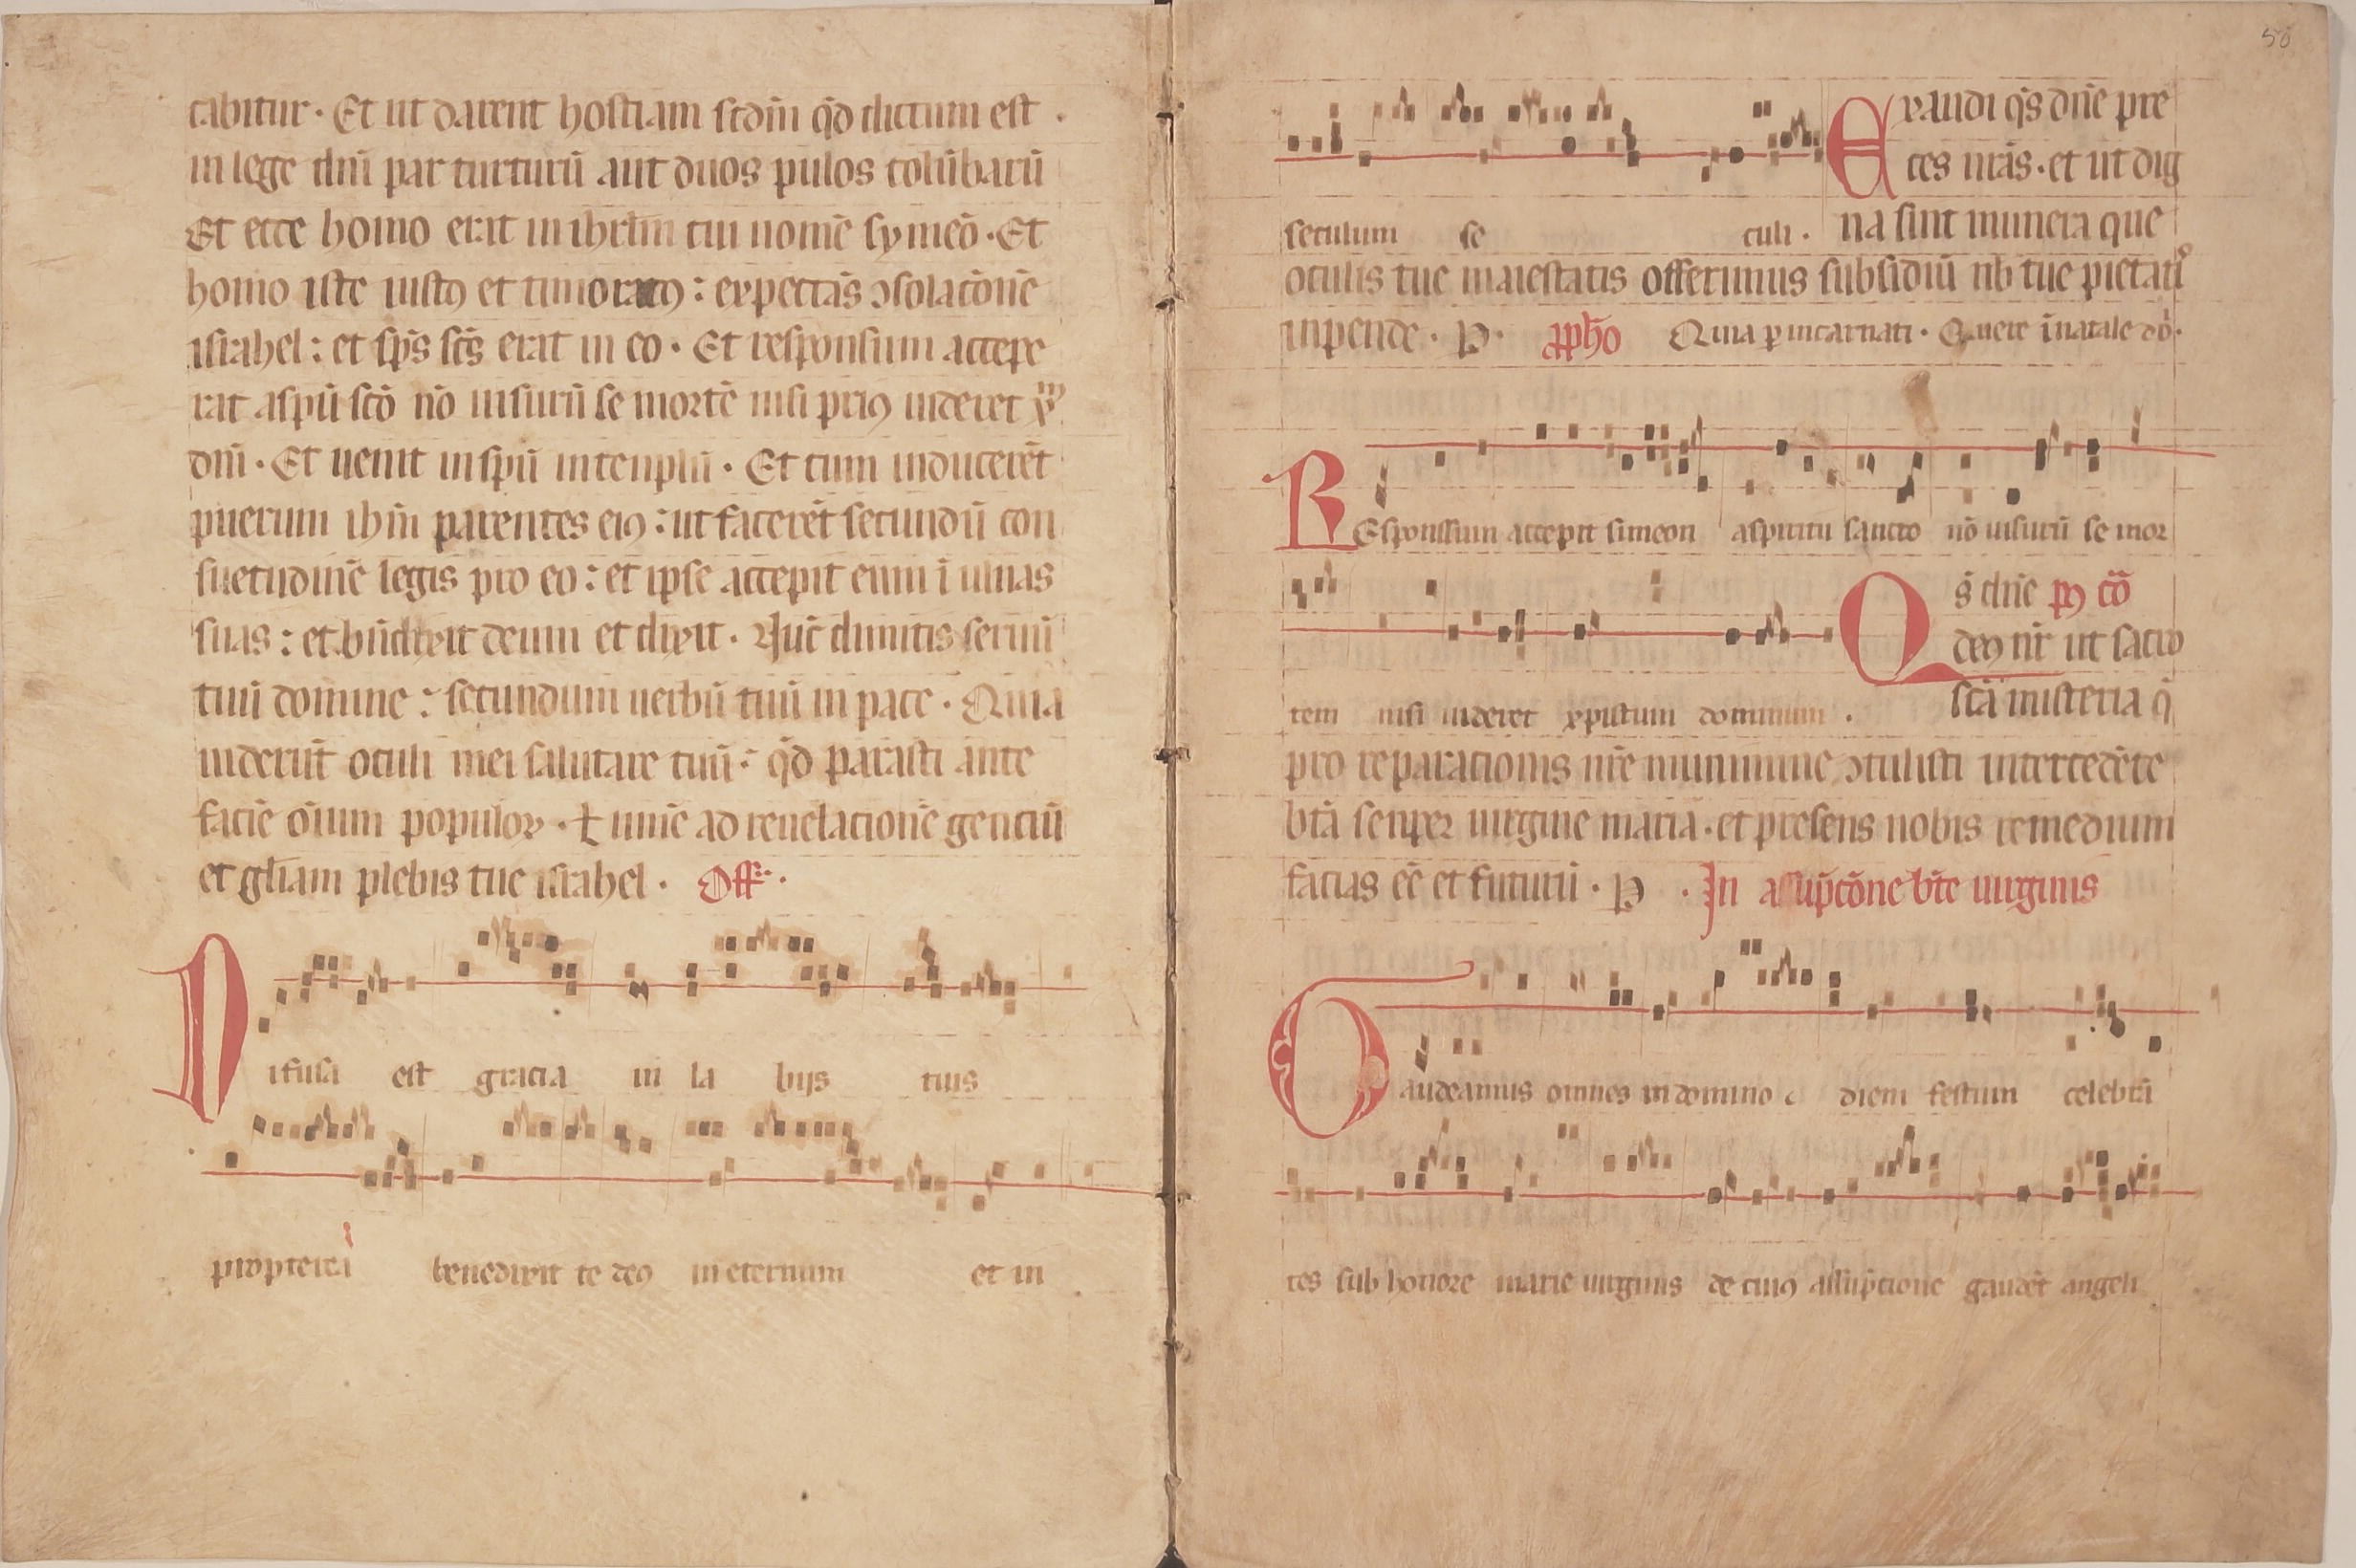 cabitur · Et ut darent hostiam scdm̄ qd̄ dictum est ·
in lege dnī par turturū aut duos pulos colūbarū
Et ecce homo erat in ihrlm̄ cui nomē symeō · Et
homo iste iustꝯ et timoratꝯ : expectās ↄsolacōnē
israhel : et sp̄s sc̄s erat in eo · Et responsum accepe
rat a spū scō nō uisurū se mortē nisi priꝯ uideret xp̄m
dnī · Et uenit in spū in templū · Et cum inducerēt
puerum ihm̄ parentes eiꝯ : ut facerēt secundū con
suetudinē legis pro eo : et ipse accepit eum ī ulnas
suas : et bn̄dixit deum et dixit · Nūc dimitis seruū
tuū domine : secundum uerbū tuū in pace · Quia
uiderūt oculi mei salutare tuū : qd̄ parasti ante
faciē oīum populoꝝ · Lumē ad reuelacionē genciū
et gl̄iam plebis tue israhel · Off ·
Difusa est gracia in la bijs tuis
propterea benedixit te deꝯ in eternum et in
50
seculum se culi ·
Exaudi qs̄ dn̄e pre
ces nrās · et ut dig
na sint munera que
oculis tue maiestatis offerimus subsidiū nb̄ tue pietatis
inpende · P · Quia ꝑ incarnati · Quere ī natale dō ·
Responssum accepit simeon a spiritu sancto nō uisurū se mor
tem nisi uideret xpistum dominum ·
Qs̄ dn̄e pꝯ cō
deꝯ nr̄ ut sacro
scā misteria q̄
pro reparacionis nrē munimine ↄtulisti intercedēte
btā senper uirgine maria · et presens nobis remedium
facias eē et futurū · P · In assūpcōne btē uirginis
Gaudeamus omnes in domino diem festum celebrā
tes sub honore marie uirginis de cuiꝯ assūpcione gaudēt angeli